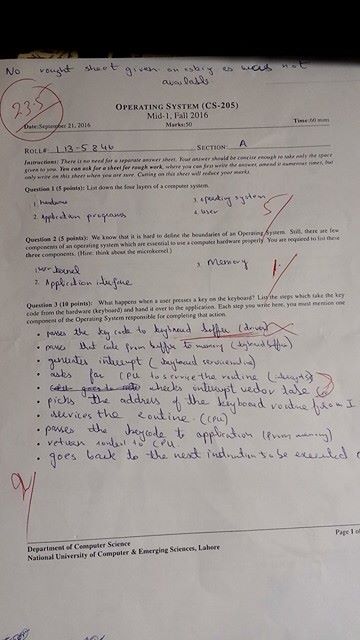 No rought sheet given on asking as was not
available.
23.5
OPERATING SYSTEM (CS-205)
Mid-1, Fall 2016
Date:September 21, 2016 Marks:50 Time:60 mms
ROLL# L13-5846 SECTION: A
Instructions: There is no need for a separate answer sheet. Your answer should be concise enough to take only the space
given to you. You can ask for a sheet for rough work, where you can first write the answer, amend it numerous times, but
only write on this sheet when you are sure. Cutting on this sheet will reduce your marks.
Question 1 (5 points): List down the four layers of a computer system.
1. hardware 3. operating system
2. Application programs 4. user
5/
Question 2 (5 points): We know that it is hard to define the boundaries of an Operating System. Still, there are few
components of an operating system which are essential to use a computer hardware properly. You are required to list these
three components. (Hint: think about the microkernel.)
kernel 3. Memory
2. Application
1
Question 3 (10 points): What happens when a user presses a key on the keyboard? List the steps which take the key
code from the hardware (keyboard) and hand it over to the application. Each step you write here, you must mention one
component of the Operating System responsible for completing that action.
• passes the key code to keyboard buffer (driver)
• passes that code from buffer to memory (keyboard buffer)
• generates interrupt (keyboard
• asks for CPU to service the routine
• checks interrupt vector table
• picks the address of the keyboard routine from I
• services the routine. (CPU)
• passes the keycode to application (from memory)
• returns control to CPU.
• goes back to the next instruction to be executed
Department of Computer Science Page 1 of
National University of Computer & Emerging Sciences, Lahore